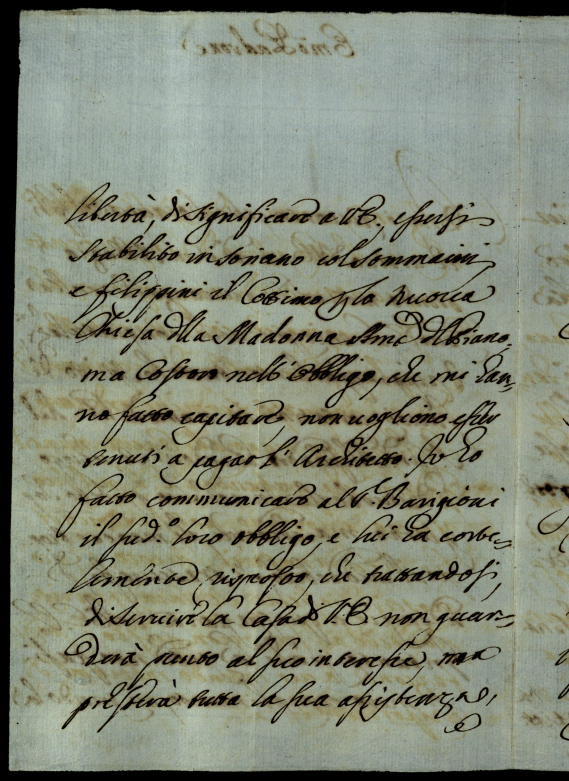 libertà, di significare a V.E., essersi
stabilito in Soriano col Sommaini,
e Filippini il Cottimo p la nuova
Chiesa dlla Madonna SSma dl Piano,
ma Costoro nell' obbligo, che mi han-
no fatto capitare, non vogliono esser
tenuti a pagar l' Architetto. Io ho
fatto communicare al Sr. Barigioni
il sud.o loro obbligo, e lui ha corte-
semente risposto, che trattandosi
di servire la Casa di V.E. non guar-
derà punto al suo interesse, ma
presterà tutta la sua assistenza,
e